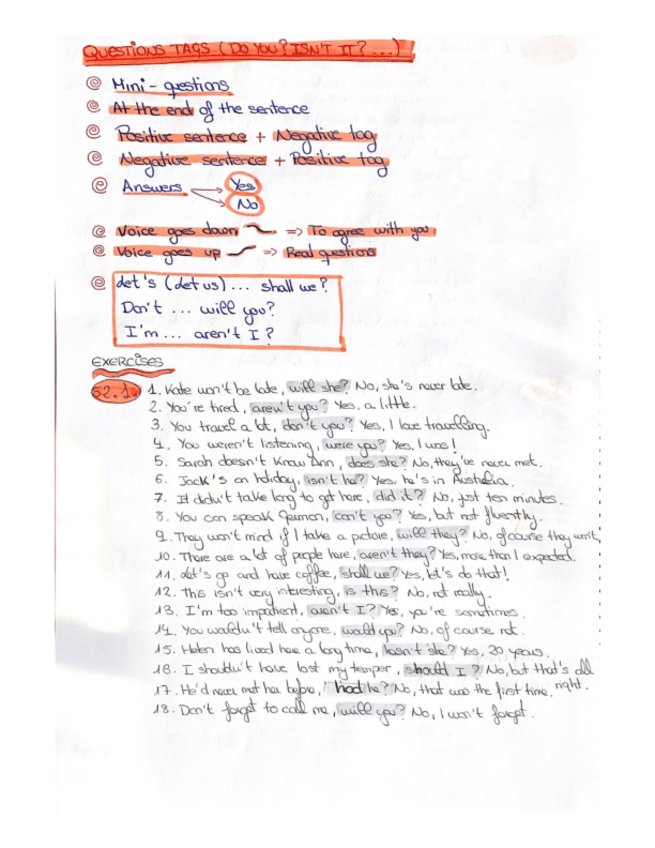 QUESTIONS TAGS (DO YOU? ISN'T IT? ...)
Mini-questions
At the end of the sentence
Positive sentence + Negative tag
Negative sentence + Positive tag
Answers Yes
No
Voice goes down => To agree with you
Voice goes up => Real questions
Let's (Let us) ... shall we?
Don't ... will you?
I'm ... aren't I?
EXERCISES
52.1. 1. Kate won't be late, will she? No, she's never late.
2. You're tired, aren't you? Yes, a little.
3. You travel a lot, don't you? Yes, I love travelling.
4. You weren't listening, were you? Yes, I was!
5. Sarah doesn't know Ann, does she? No, they've never met.
6. Jack's on holiday, isn't he? Yes, he's in Australia.
7. It didn't take long to get here, did it? No, just ten minutes.
8. You can speak German, can't you? Yes, but not fluently.
9. They won't mind if I take a picture, will they? No, of course they won't.
10. There are a lot of people here, aren't they? Yes, more than I expected.
11. Let's go and have coffee, shall we? Yes, let's do that!
12. This isn't very interesting, is this? No, not really.
13. I'm too impatient, aren't I? Yes, you're sometimes.
14. You wouldn't tell anyone, would you? No, of course not.
15. Helen has lived here a long time, hasn't she? Yes, 20 years.
16. I shouldn't have lost my temper, should I? No, but that's all
right.
17. He'd never met her before, had he? No, that was the first time.
18. Don't forget to call me, will you? No, I won't forget.